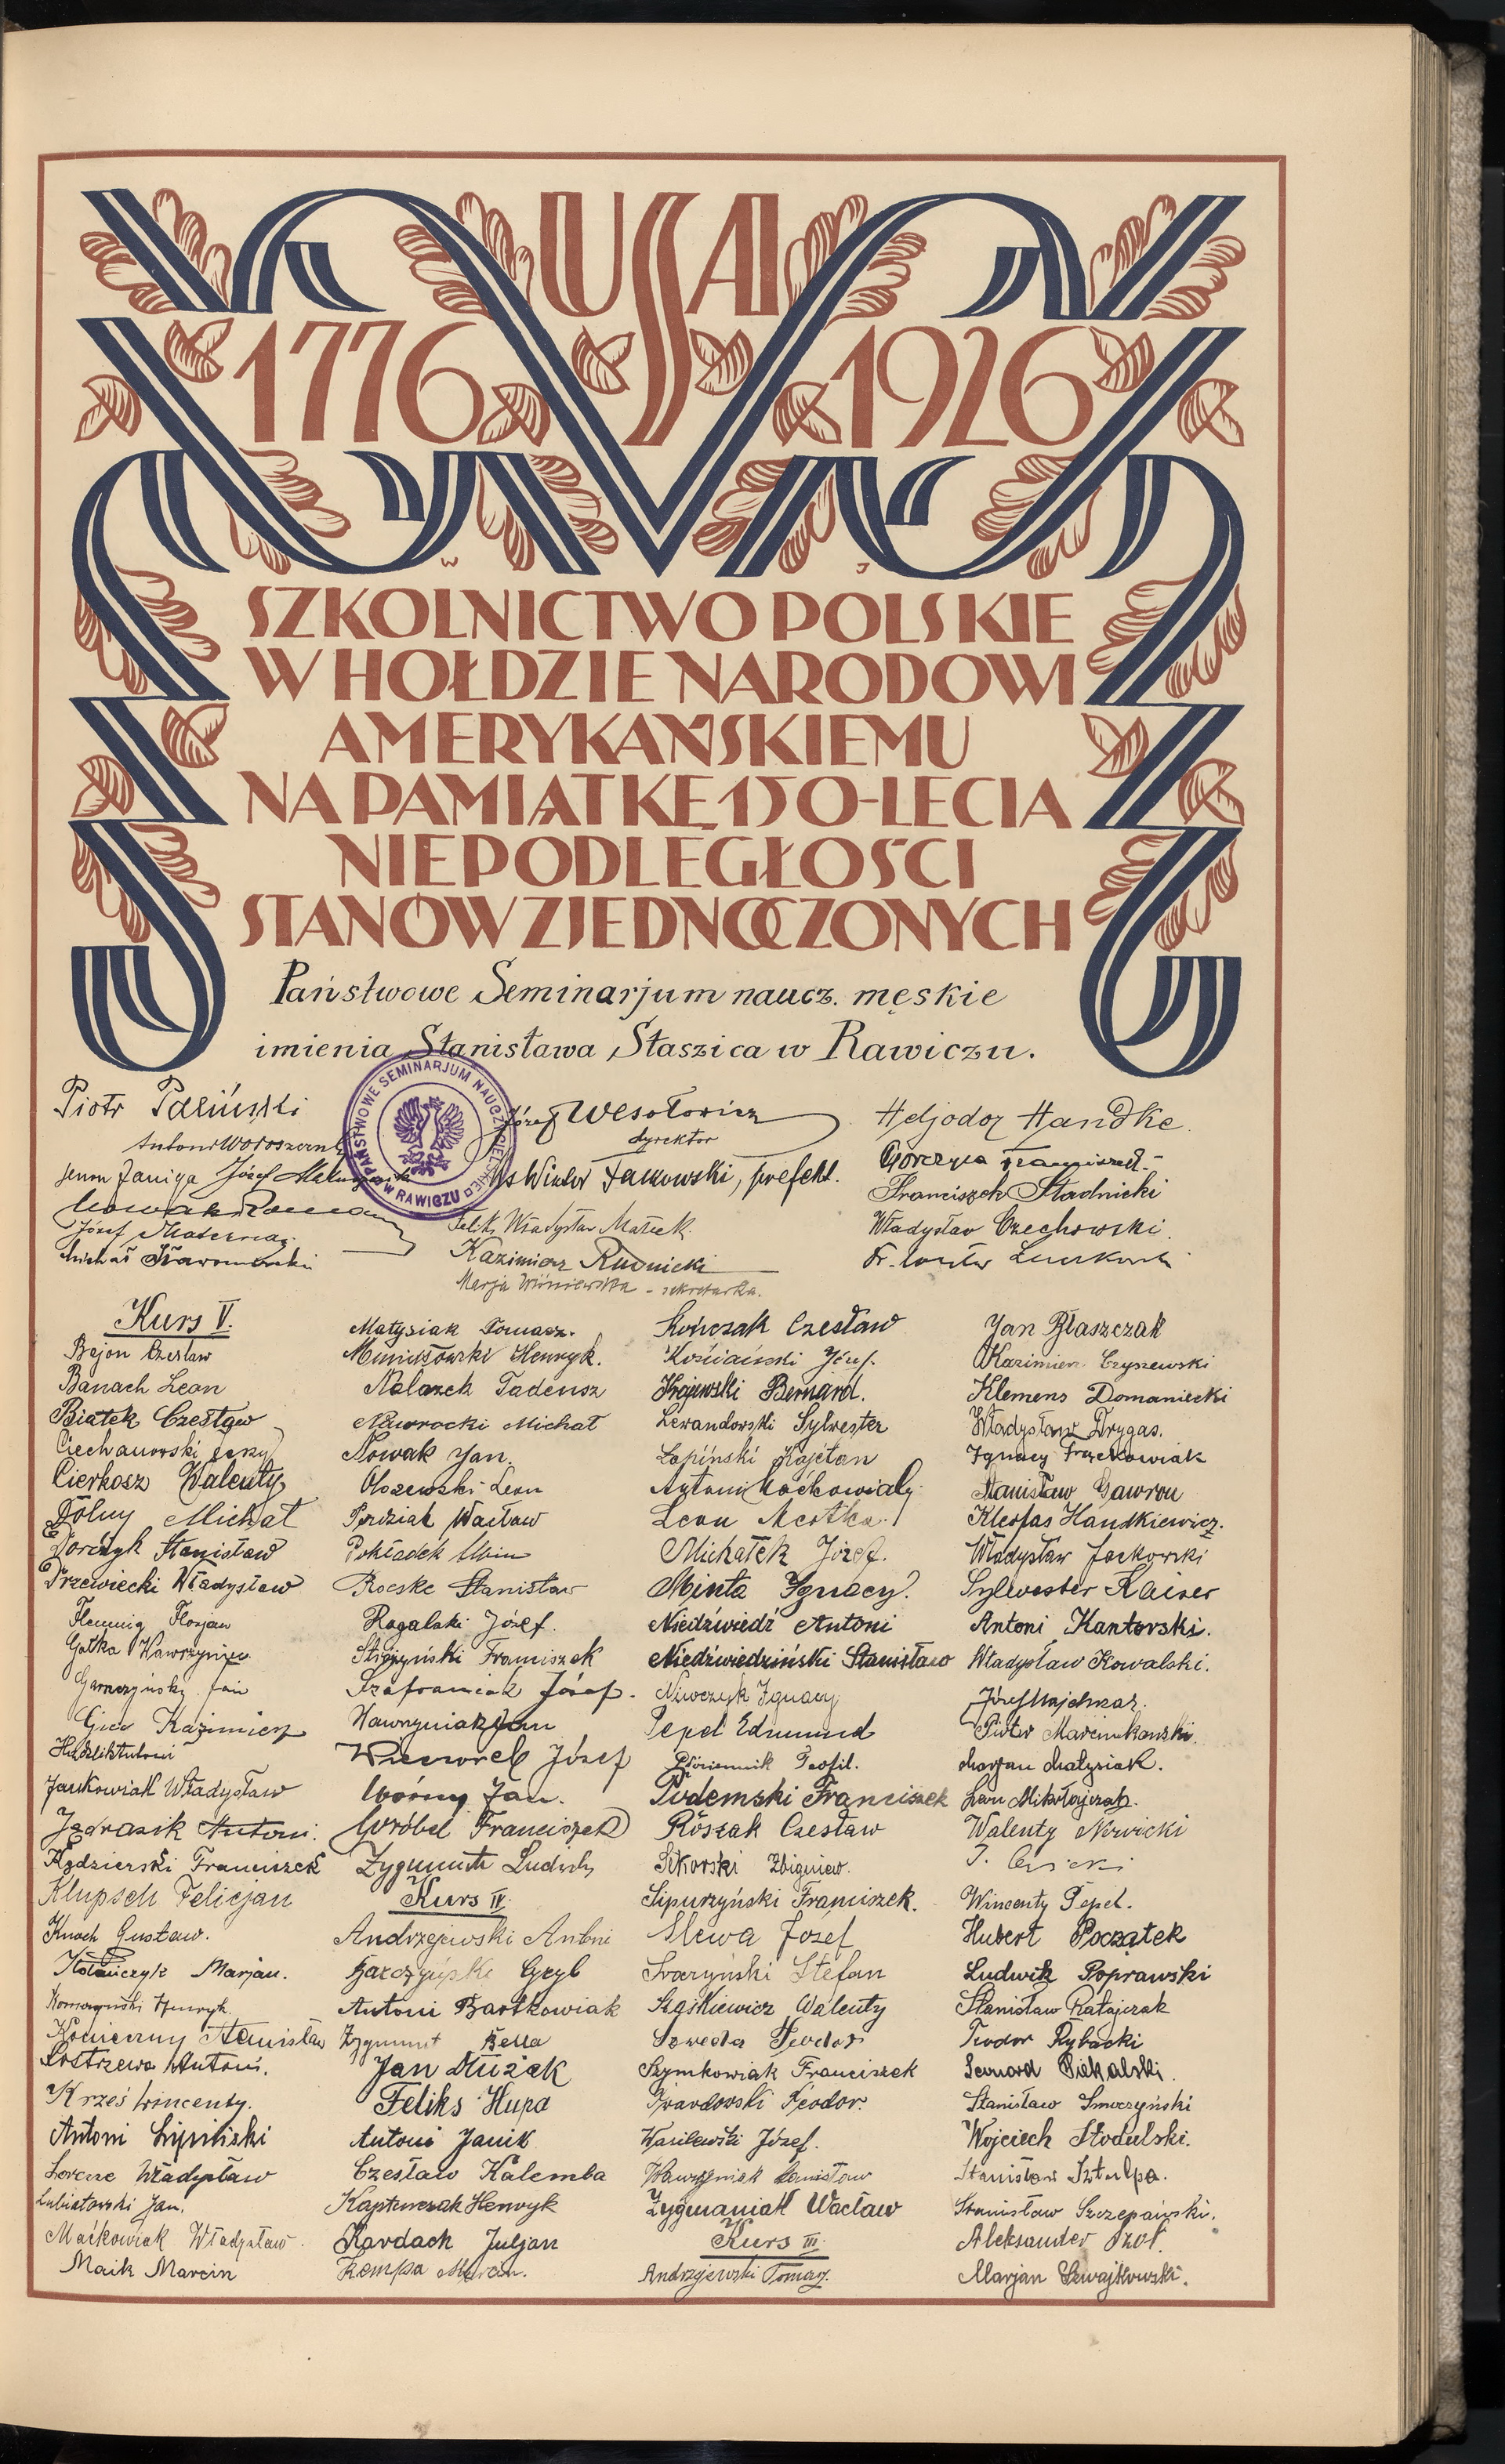 USA
1776 1926
SZKOLNICTWO POLSKIE
W HOŁDZIE NARODOWI
AMERYKAŃSKIEMU
NA PAMIĄTKĘ 150-LECIA
NIEPODLEGŁOŚCI
STANÓW ZJEDNOCZONYCH
Państwowe Seminarjum naucz. męskie
imienia Stanisława Staszica w Rawiczu.
PAŃSTWOWE SEMINARJUM NAUCZYCIELSKIE W RAWICZU
Piotr
Józef
Nowak Roman
Józef Materna
Michał
Józef Wesołowicz
dyrektor
prefekt.
Feliks Władysław Małek
Kazimierz Rudnicki
Marja Wiśniewska - sekretarka.
Heljodor Handke.
Górczyca Franciszek
Franciszek Stadnicki
Władysław Czechowski.
Kurs V.
Bejon Czesław
Banach Leon
Białek Czesław
Ciechanowski Jerzy
Cierkosz Walenty
Dolny Michał
Dorczyk Stanisław
Drzewiecki Władysław
Flemmig Florjan
Gałka Wawrzyniec
Garnczyński Jan
Kazimierz
Jankowiak Władysław
Jędrasik Antoni.
Kędzierski Franciszek
Klupsch Felicjan
Knoch Gustaw.
Kołańczyk Marjan.
Komorowski Henryk.
Konieczny Stanisław
Kostrzewa Antoni.
Krześ Wincenty.
Antoni Lipiński
Lorcze Władysław
Lubiatowski Jan.
Maćkowiak Władysław.
Maik Marcin
Matysiak Tomasz.
Henryk.
Nalazek Tadeusz
Nawrocki Michał
Nowak Jan.
Olszewski Leon
Perdziak Wacław
Pokładek Albin
Roeske Stanisław
Rogalski Józef.
Franciszek
Szafraniak Józef.
Wawrzyniak Jan
Wieczorek Józef
Worny Jan.
Wróbel Franciszek
Zygmunt Ludwik
Kurs IV.
Andrzejewski Antoni
Antoni Bartkowiak
Zygmunt Bella
Jan Dłużak
Feliks Hupa
Antoni Janik
Czesław Kalemba
Kapturczak Henryk
Kardach Juljan
Kempa Marcin.
Kończak Czesław
Kościański Józef.
Krajewski Bernard.
Lewandowski Sylwester
Łapiński Kajetan
Antoni Maćkowiak
Leon Mertka.
Michałek Józef.
Minta Ignacy.
Niedźwiedź Antoni
Niedźwiedziński Stanisław
Niewczyk Ignacy
Pepel Edmund
Płóciennik Teofil.
Podemski Franciszek
Roszak Czesław
Sikorski Zbigniew.
Sipurzyński Franciszek.
Slewa Józef
Stefan
Szaśkiewicz Walenty
Szweda Teodor
Szymkowiak Franciszek
Twardowski Teodor.
Wasilewski Józef.
Wawrzyniak Stanisław
Zygmaniak Wacław
Kurs III.
Andrzejewski Tomasz.
Jan Błaszczak
Kazimierz Czyszewski
Klemens Domaniecki
Władysław Drygas.
Ignacy Frąckowiak
Stanisław Gawron
Kleofas Handkiewicz.
Władysław Jackowski
Sylwester Kaiser
Antoni Kantorski.
Władysław Kowalski.
Józef Majchrzak.
Piotr Marcinkowski.
Marjan Matysiak.
Leon Mikołajczak.
Walenty Nowicki
Wincenty Pepel.
Hubert Początek
Ludwik Poprawski
Stanisław Ratajczak
Teodor Rybacki
Bernard Siekalski.
Stanisław Smoczyński
Wojciech Stodulski.
Stanisław Sztulpa.
Stanisław Szczepański.
Aleksander Szot.
Marjan Szwajkowski.